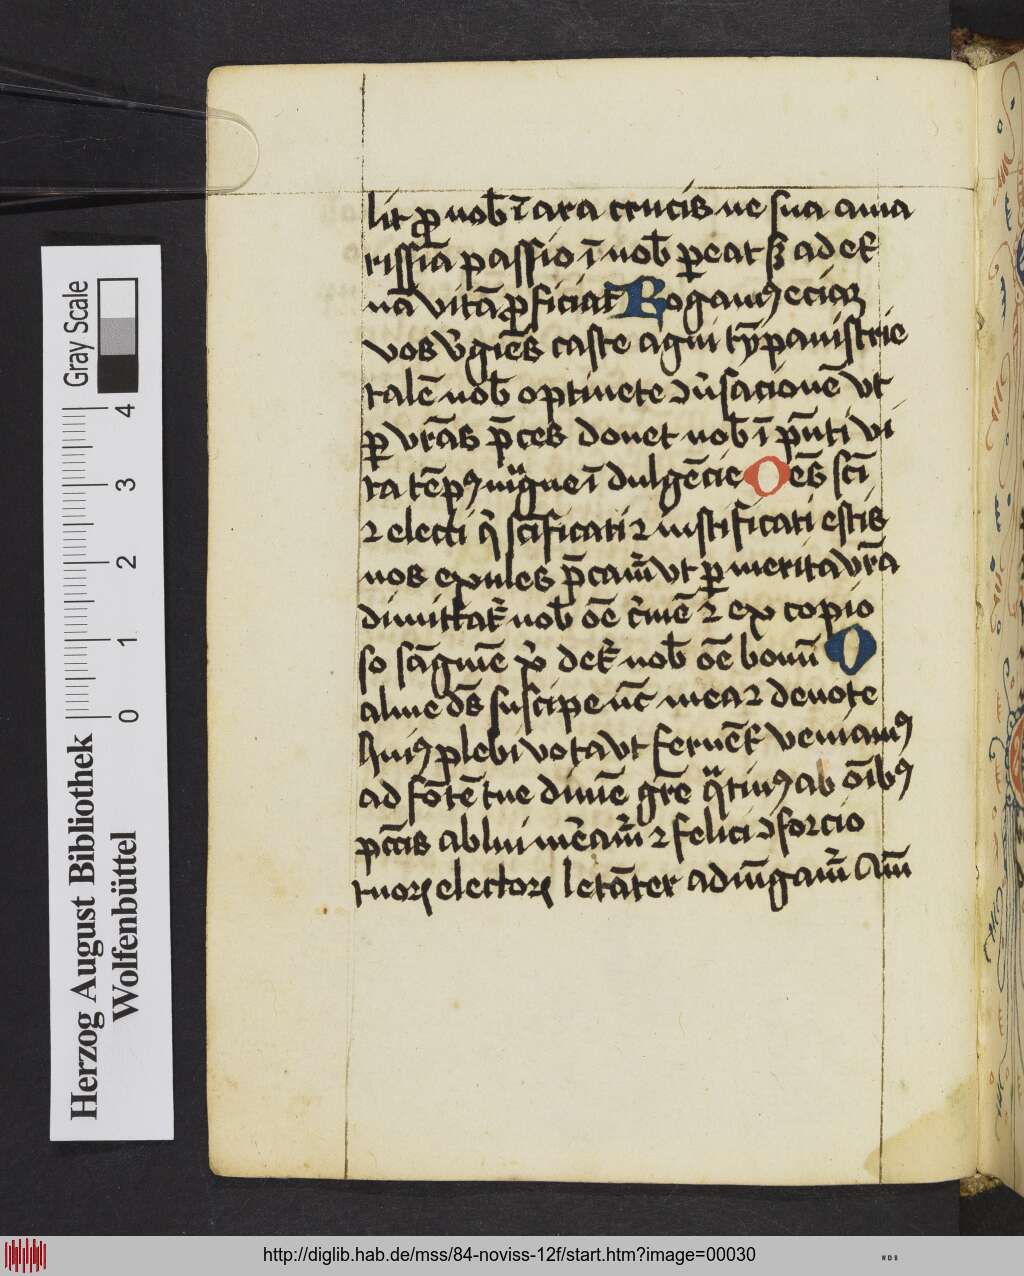 lit ꝓ nob̄ ī ara crucis ne sua ama
rissīa passio ī nob̄ ꝑeat sꝫ ad et̄
nā vitā ꝓficiat Rogamꝰ eciaꝫ
vos v̄gīes caste agni tȳpanistrie
talē nob̄ optinete ↄ̄usacionē vt
ꝑ vr̄as p̄ces donet nob̄ ī p̄nti vi
ta tēpꝰ ī dulgēcie Oēs scī
⁊ electi q̄ scīficati ⁊ iustificati estis
nos exules p̄cam̄ vt ꝑ merita vr̄a
dimittat̄ nob̄ oē c̄mē ⁊ ex copio
so sāguīe xp̄i det̄ nob̄ oē bonū O
alme dēs suscipe nc̄ mea ⁊ deuote
huiꝰ plebi vota vt feruēt̄ veniamꝰ
ad fōtē tue diuīe grē q̄tinꝰ ab oībꝰ
pctīs ablui mēam̄ ⁊ felici ↄsorcio
tuoꝝ electoꝝ letāter adiūgam̄ Am̄
Gray Scale
4
3
2
1
0
Herzog August Bibliothek
Wolfenbüttel
http://diglib.hab.de/mss/84-noviss-12f/start.htm?image=00030